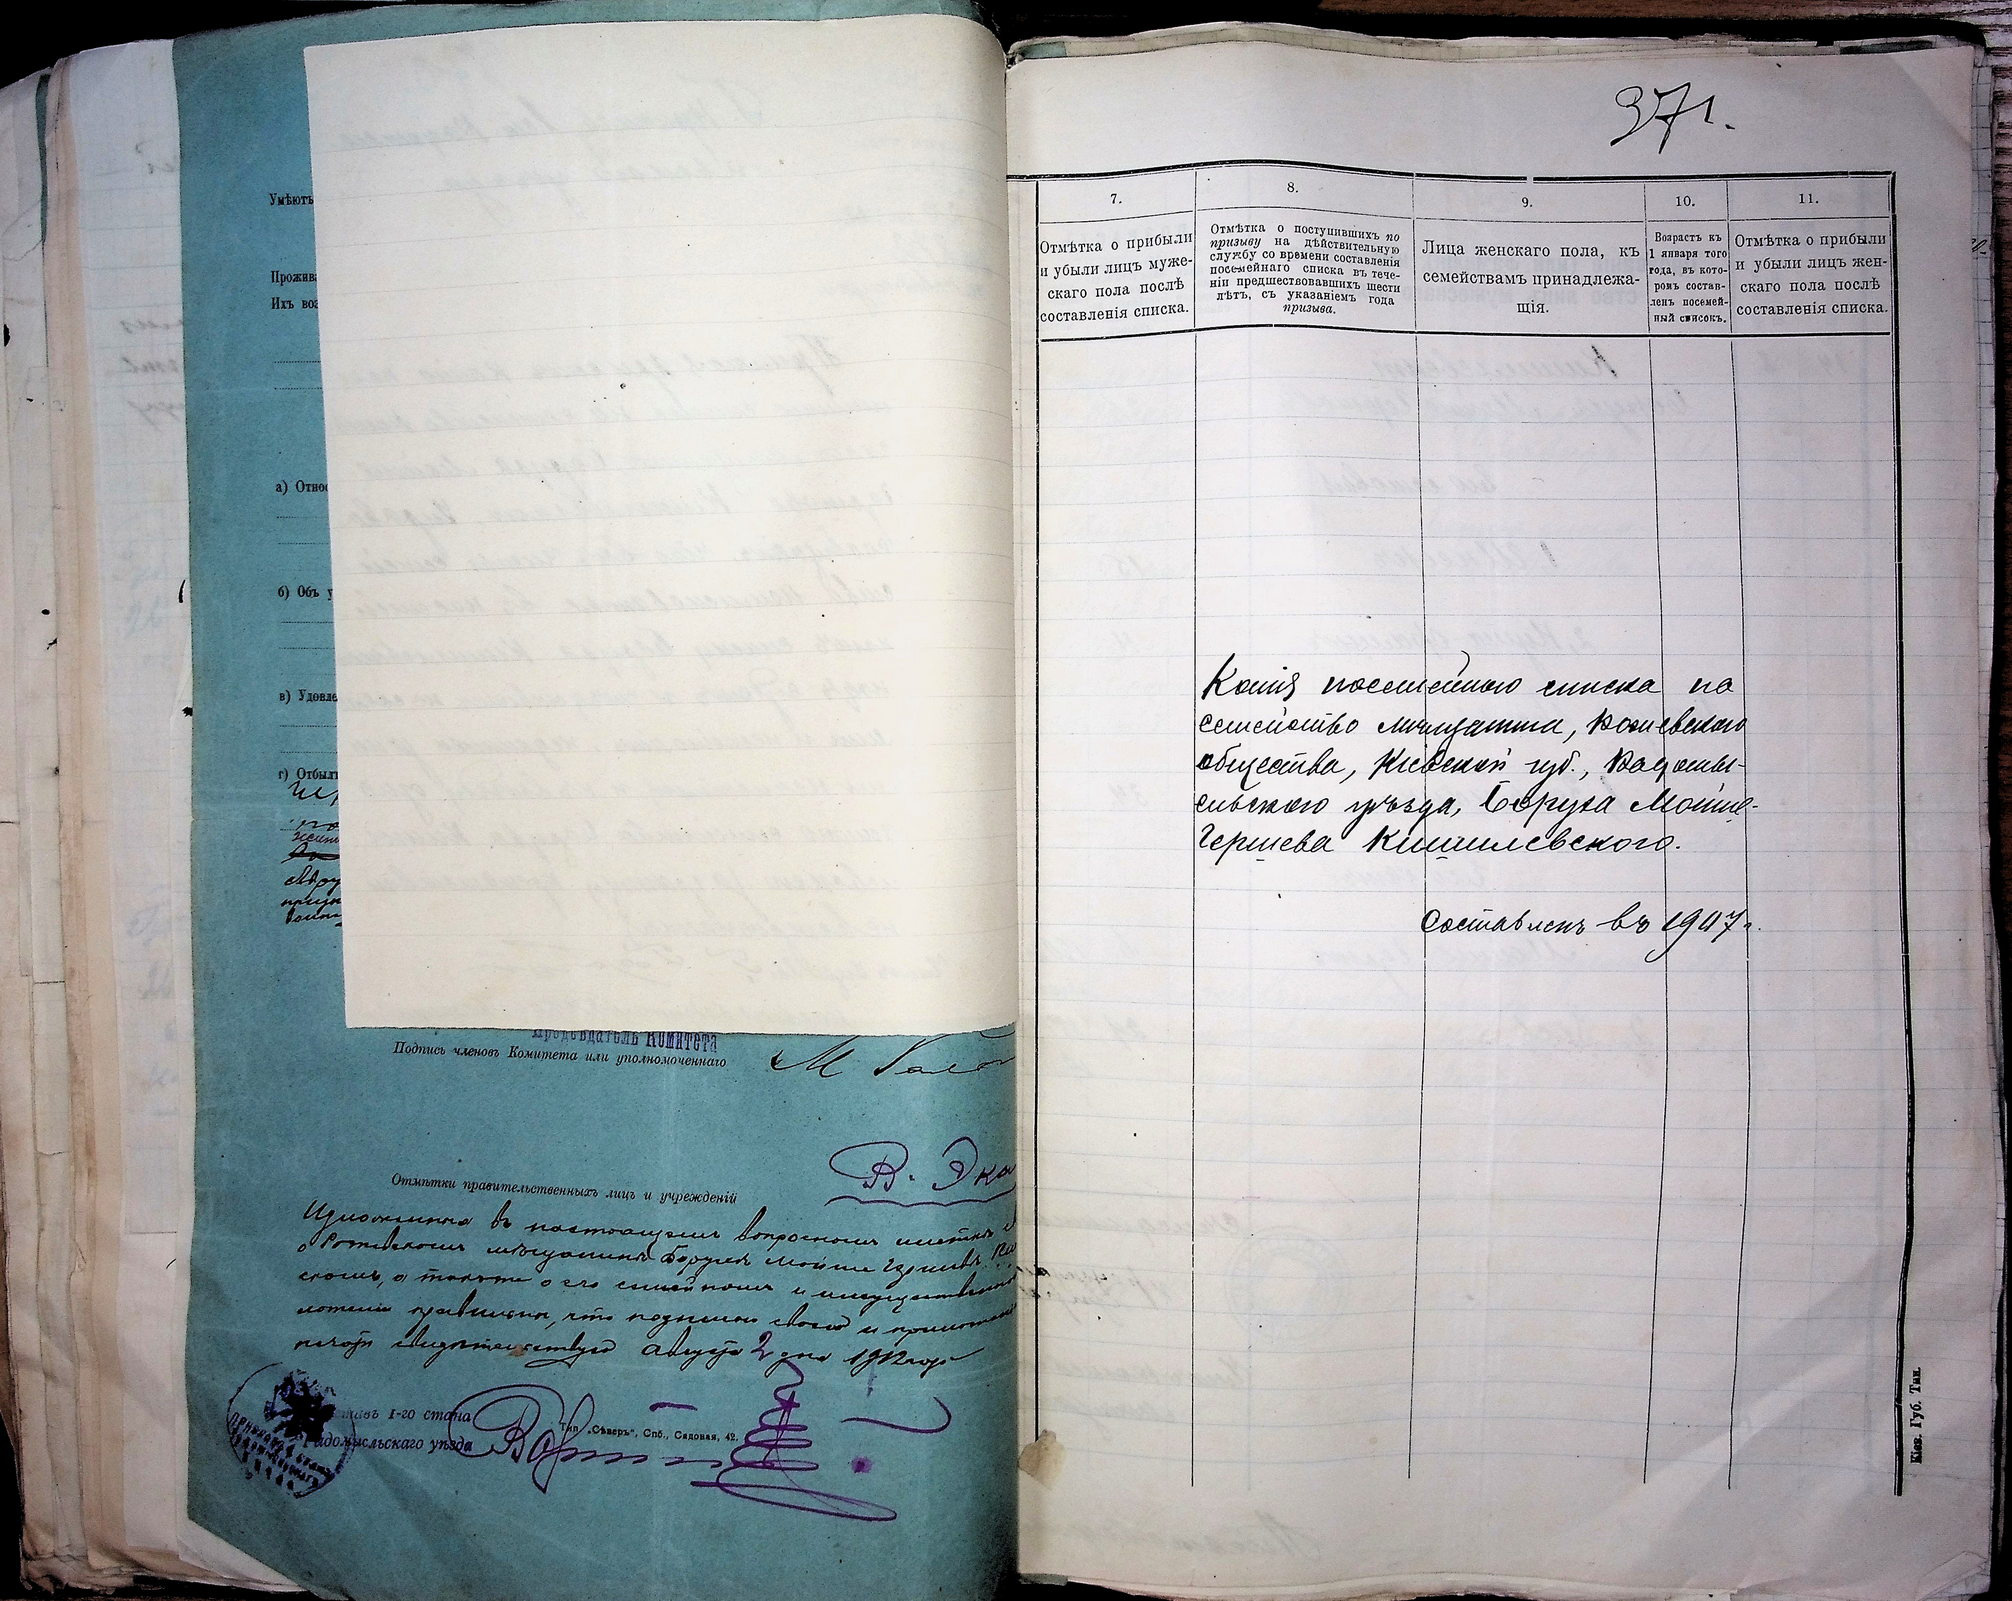 Умѣютъ
Прожива
Ихъ воз
а) Относ
б) Объ у
в) Удовле
г) Отбыл
Предсѣдатель Комитета
Подпись членовъ Комитета или уполномоченнаго
В. Эка
Отмѣтки правительственныхъ лицъ и учрежденій
Изложенныя въ настоящемъ вопросномъ листкѣ
о мѣщанинѣ Борухѣ Мойше Гершевѣ
скомъ, а также о его семейномъ и имущественномъ
ложеніи правильны, что подписью своею и приложеніемъ
печати свидѣтельствую Августа 2 дня 1912 года
1-го стана
Радомысльскаго уѣзда
Тип. „Сѣверъ", Спб., Садовая, 42.
371.
7.
Отмѣтка о прибыли
и убыли лицъ муже-
скаго пола послѣ
составленія списка.
8.
Отмѣтка о поступившихъ по
призыву на дѣйствительную
службу со времени составленія
посемейнаго списка въ тече-
ніи предшествовавшихъ шести
лѣтъ, съ указаніемъ года
призыва.
9.
Лица женскаго пола, къ
семействамъ принадлежа-
щія.
10.
Возрастъ къ
1 января того
года, въ кото-
ромъ состав-
ленъ посемей-
ный списокъ.
11.
Отмѣтка о прибыли
и убыли лицъ жен-
скаго пола послѣ
составленія списка.
Копія посемейного списка на
семейство мѣщанина,
общества, Кіевской губ., Радомы-
сльского уѣзда, Боруха Мойше-
Гершева Кишилевского.
Составленъ въ 1907 г.
Кіев. Губ. Тип.